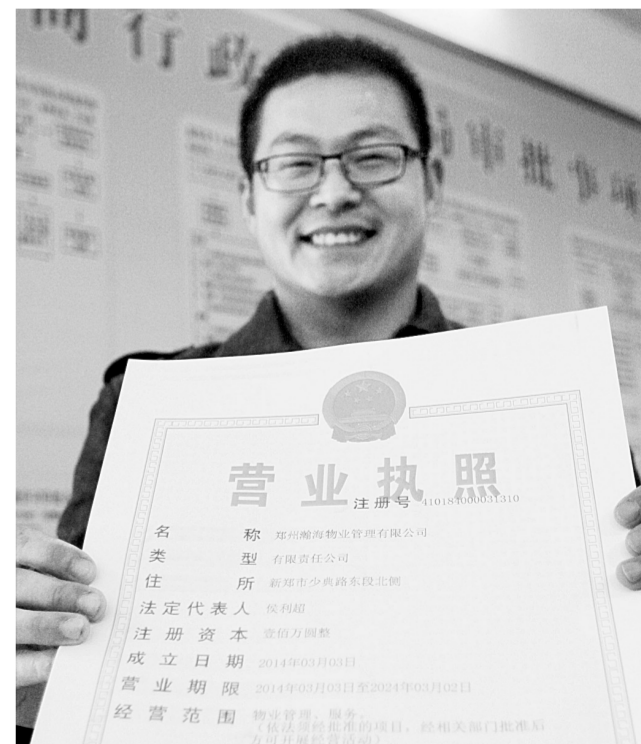 商行政 局审批事项
营业执照
注册号 410184000031310
名称 郑州瀚海物业管理有限公司
类型 有限责任公司
住所 新郑市少典路东段北侧
法定代表人 侯利超
注册资本 壹佰万圆整
成立日期 2014年03月03日
营业期限 2014年03月03日至2024年03月02日
经营范围 物业管理、服务。
(依法须经批准的项目,经相关部门批准后
方可开展经营活动)